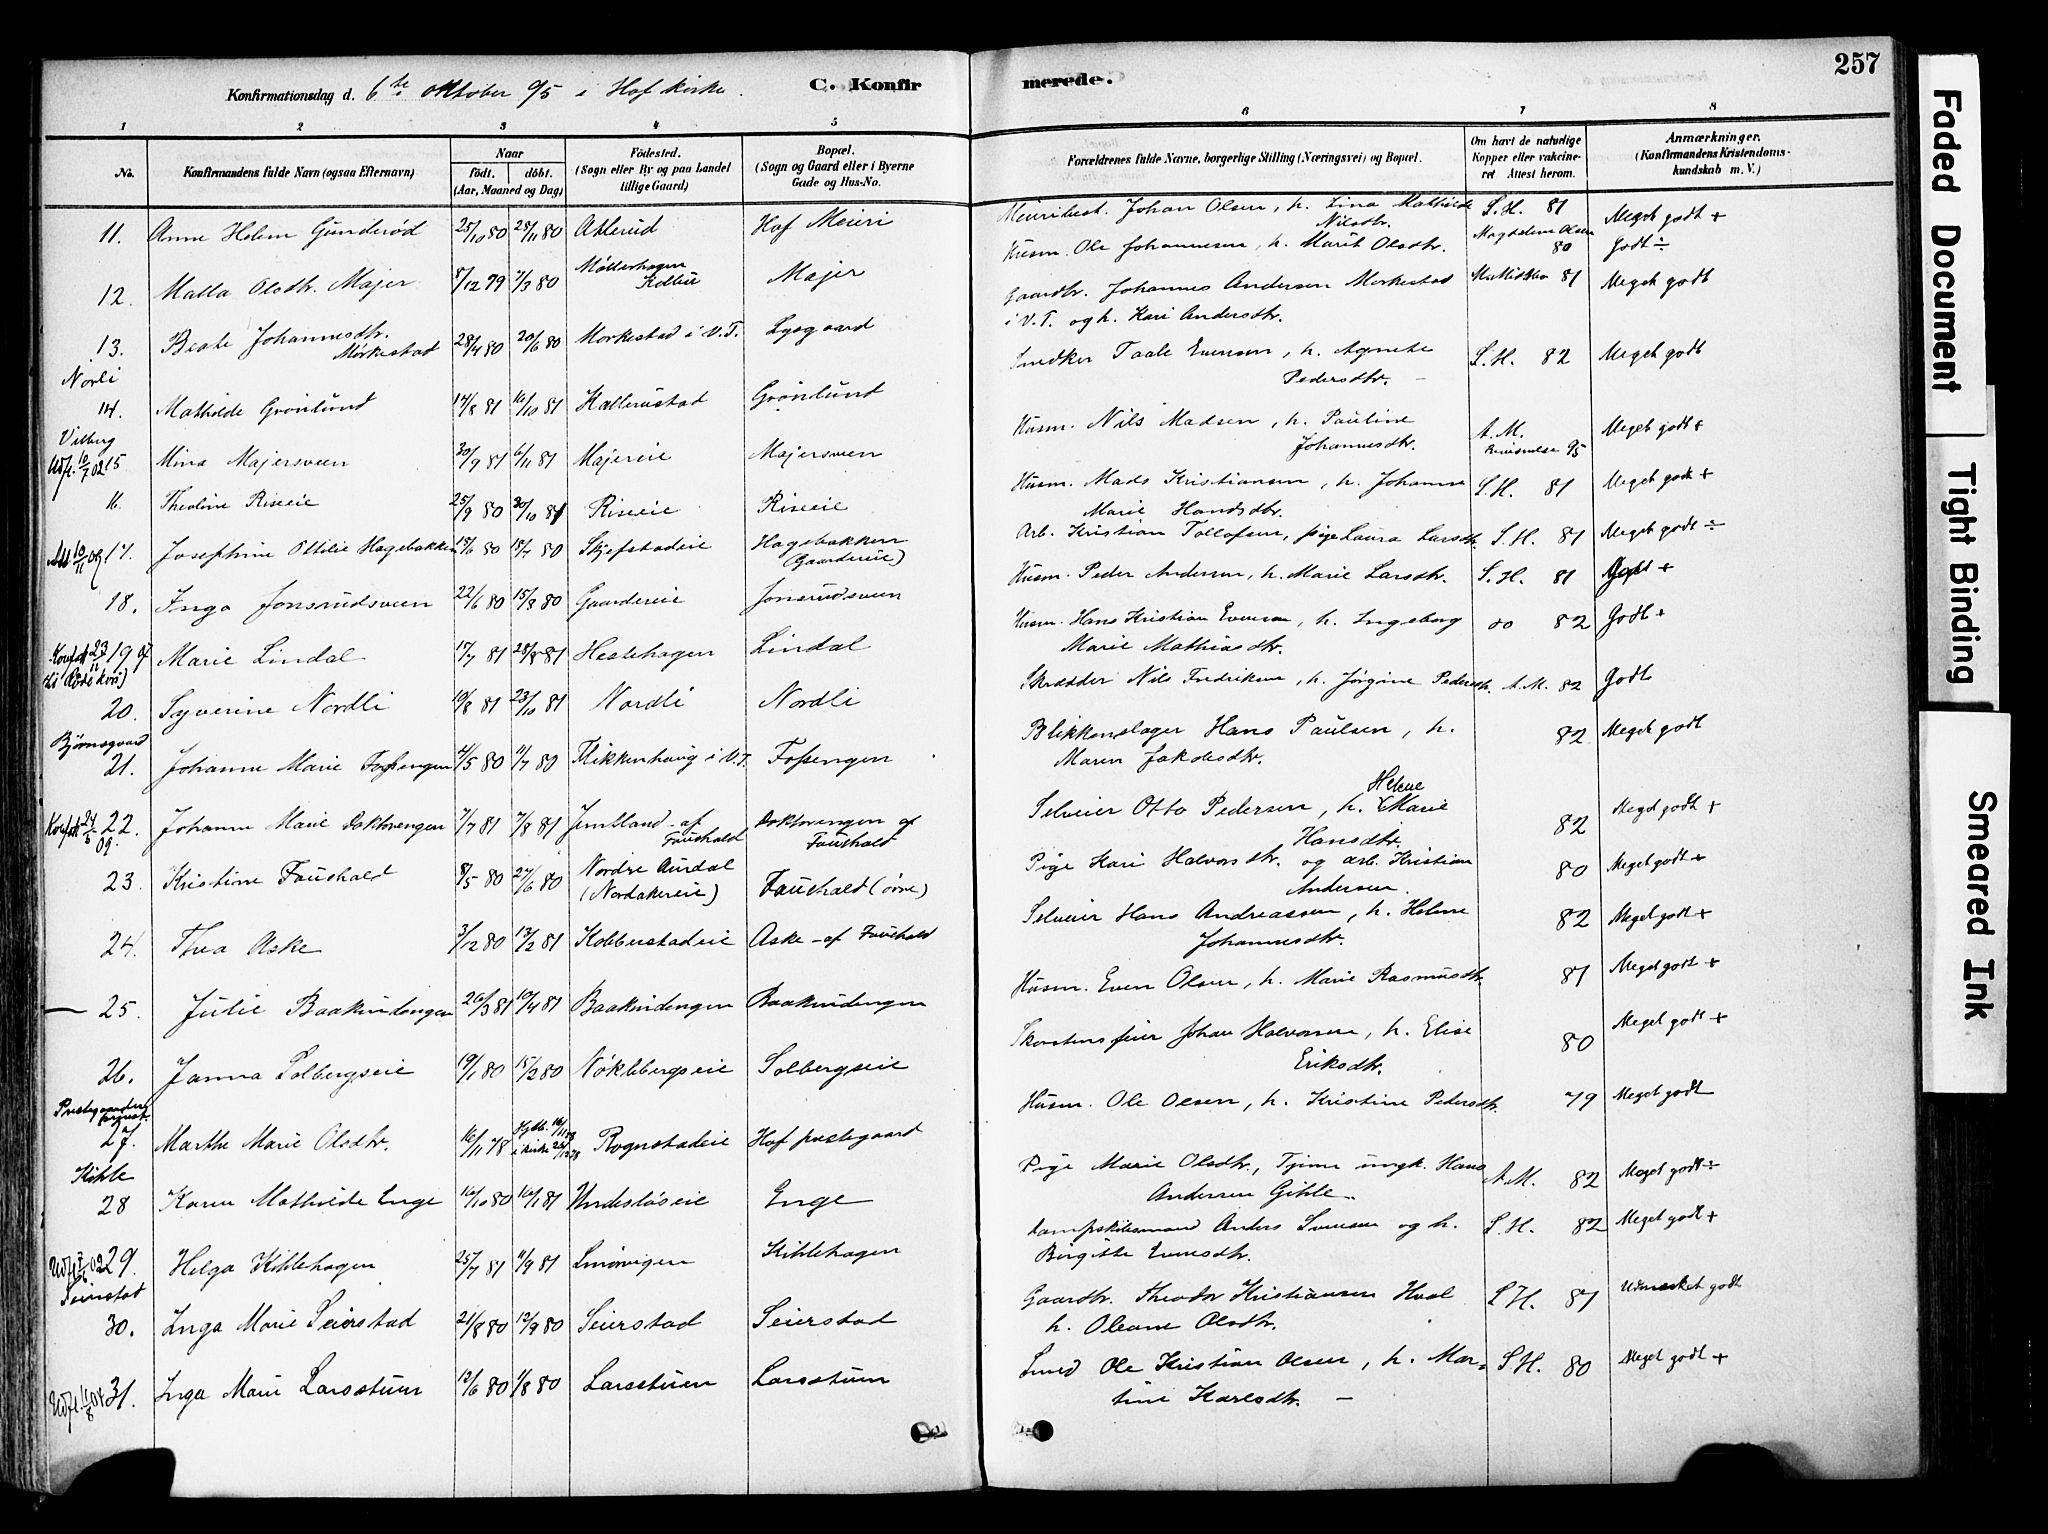 257
Konfirmationsdag d. 6te oktober 95 i Hof kirke. C. Konfirmerede.
1 2 3 4 5 6 7 8
No. Konfirmandens fulde Navn (ogsaa Efternavn) Naar født. døbt. (Aar, Maaned og Dag) Fødested. (Sogn eller By og paa Landet tillige Gaard) Bopæl. (Sogn og Gaard eller i Byerne Gade og Hus-No. Forældrenes fulde Navne, borgerlige Stilling (Næringsvei) og Bopæl. Om havt de naturlige Kopper eller vakcineret Attest herom. Anmærkninger. (Konfirmandens Kristendomskundskab m. V.)
11. Anne Helene Gunderød 25/10 80 28/11 80 Hof Meieri Meieribest. Johan Olsen, h. Lina Mathilde Nilsdtr. S.H. 81 Meget godt +
12. Malla Olsdtr. Majer 8/12 79 7/3 80 Møllerhagen Kolbu Majer Husm. Ole Johannesen, h. Marit Olsdtr. Magdalene Olsen 80 Godt ÷
13. Beate Johannesdtr. Mørkestad 28/4 80 20/6 80 Morkestad i V.T. Lysgaard Gaardbr. Johannes Andersen Morkestad i V.T. og h. Kari Andersdtr. 81 Meget godt
Norli
14. Mathilde Grønlund 14/8 81 16/10 81 Hallerustad Grønlund Snedker Taale Evensen, h. Agnete Pedersdtr. – S.H. 82 Meget godt
Vilberg
Udfl. 10/7 02 15 Mina Majersveen 30/9 81 6/11 81 Majereie Majersveen Husm. Nils Madsen, h. Pauline Johannesdtr. A.M. 95 Meget godt +
16. Theoline Riseeie 25/9 80 30/10 81 Riseeie Riseeie Husm. Mads Kristiansen, h. Johanne Marie Hansdtr. S.H. 81 Meget godt +
17. Josephine Ottilie Hagebakken 15/6 80 18/7 80 Skjefstadeie Hagebakken (Gaardereie) Arb. Kristian Tollofsen, pige Laura Larsdtr. S.H. 81 Meget godt ÷
18. Inga Jonsrudsveen 22/6 80 15/8 80 Gaardereie Jonsrudsveen Husm. Peder Andersen, h. Marie Larsdtr. S.H. 81 Godt +
19 Marie Lindal 17/7 81 28/8 81 Hestehagen Lindal Husm. Hans Kristian Evensen, h. Ingeborg Marie Mathiasdtr. 82 Godt +
20. Syverine Nordli 10/8 81 23/10 81 Nordli Nordli Skrædder Nils Fredriksen, h. Jørgine Pedersdtr. A.M. 82 Godt
Bjørnsgaard
21. Johanne Marie Fossengen 4/5 80 11/7 80 Flikkenhaug i V.T. Fossengen Blikkenslager Hans Paulsen, h. Maren Jakobsdtr. 82 Meget godt
22. Johanne Marie Doktorengen 7/7 81 7/8 81 Jemtland af Fauskald Doktorengen af Fauskald Selveier Otto Pedersen, h. Helene Marie Hansdtr. 82 Meget godt +
23. Kristine Fauskald 8/5 80 27/6 80 Nordre Aurdal (Nordakereie) Fauskald (øvre) Pige Kari Halvorsdtr. og arb. Kristian Andersen. 80 Meget godt +
24. Thea Aske 3/12 80 13/2 81 Kobberstadeie Aske af Fauskald Selveier Hans Andreassen, h. Helene Johannesdtr. 82 Meget godt +
25. Julie Baakindengen 20/3 81 10/4 81 Baakindengen Baakindengen Husm. Even Olsen, h. Marie Rasmusdtr. 81 Meget godt +
26. Janna Solbergseie 19/1 80 15/2 80 Nøklebergseie Solbergseie Skorstensfeier Johan Halvorsen, h. Elise Eriksdtr. 80 Meget godt +
27. Marthe Marie Olsdtr. 16/11 78 Rognstadeie Hof prestegaard Husm. Ole Olsen, h. Kristine Pedersdtr. 79 Meget godt
Kihle
28 Karen Mathilde Enge 16/10 80 16/1 81 Enge Pige Marie Olsdtr., Tjener ungk. Hans Andersen Gihle. A.M. 82 Meget godt ÷
29. Helga Kihlehagen 25/7 81 11/9 81 Smørvigen Kihlehagen Anders Svensen og h. Birgitte Evensdtr. S.H. 82 Meget godt +
Seierstad
30. Inga Marie Seierstad 21/8 80 12/9 80 Seierstad Seierstad Gaardbr. Theodor Kristiansen Hval h. Oleane Olsdtr. S.H. 81 Udmærket godt
Udfl. 31. Inga Marie Larsstuen 12/6 80 1/8 80 Larsstuen Larsstuen Smed Ole Kristian Olsen, h. Martine Karlsdtr. – S.H. 80 Meget godt +
Faded Document
Tight Binding
Smeared Ink